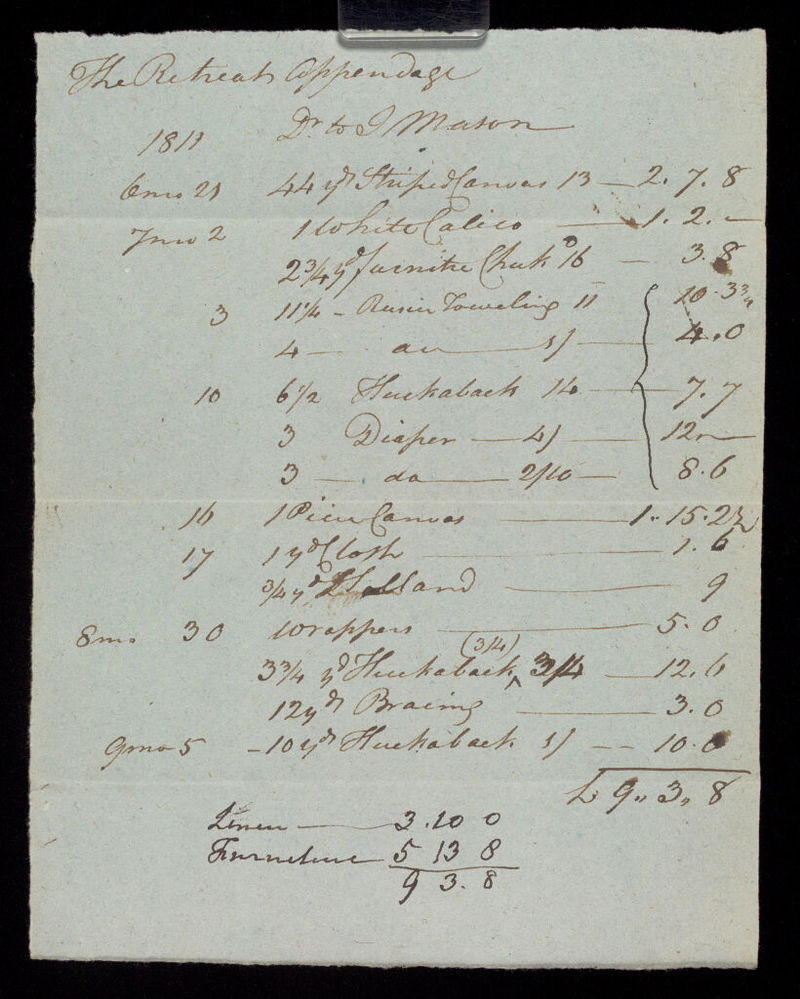 The Retreats Appendage
Dr. to J Mason
1811
6mo 21 44 yds Striped Canvas 13 — 2. 7. 8
7mo 2 1 White Calico — 1. 2. —
2 3/4 yd furnitre Chek 16 — 3. 8
3 11 1/4 - Rusia Toweling 11 10. 3 3/4
4 — do — 1/ — 4. 0
10 6 1/2 Huckaback 14 — 7. 7
3 Diaper — 4/ — 12 —
3 — do — 2/10 — 8. 6
16 1 Piece Canvas — 1. 15. 2 1/2
17 1 yd Cloth — 1. 6
3/4 yd Holland — 9
8mo. 30 Wrappers — 5. 0
3 3/4 yd Huckaback (3/4) ^ 3/4 — 12. 6
12 yds Bracing — 3. 0
9mo 5 - 10 yds Huckaback 1/ — 10. 0
L 9 " 3 " 8
Linen — 3. 10 0
Furneture — 5 13 8
9 3. 8